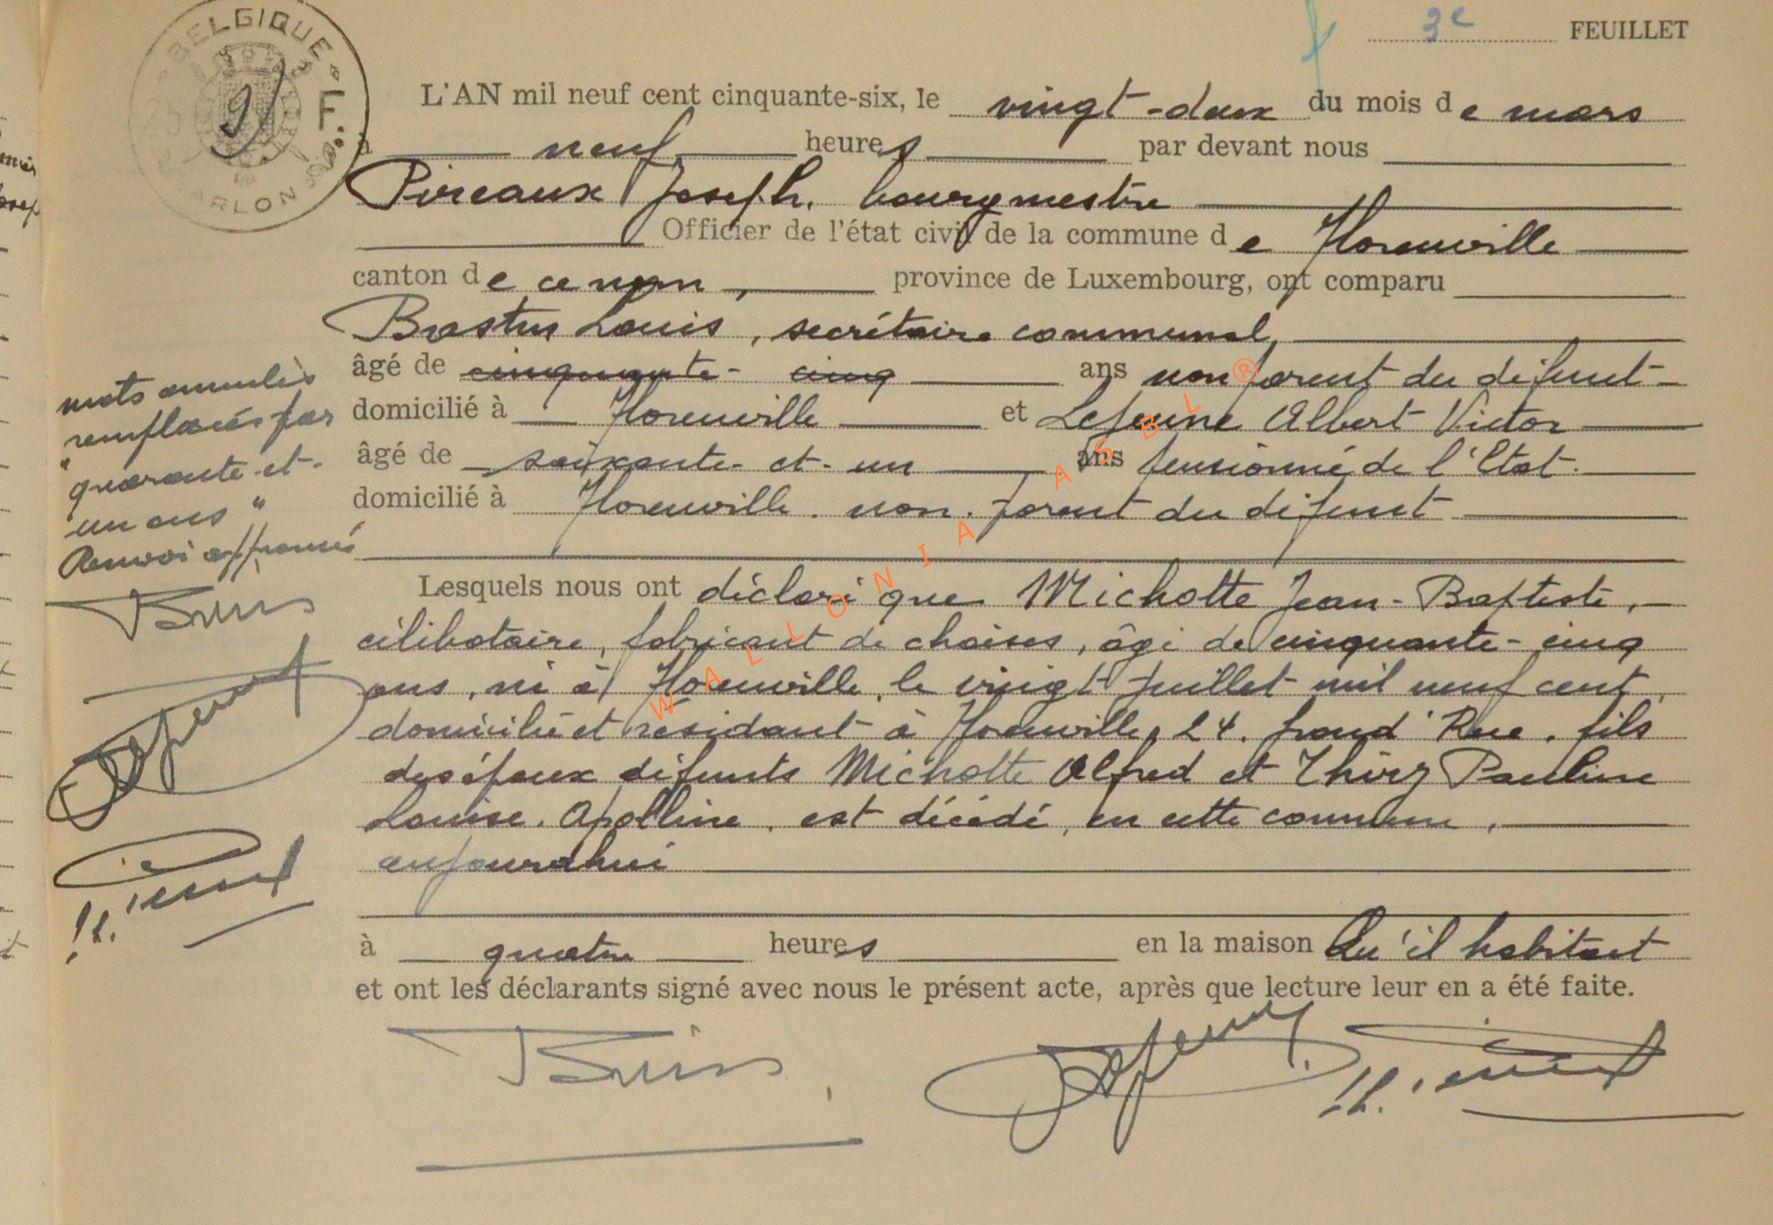 3e FEUILLET
BELGIQUE
ARLON
9
L'AN mil neuf cent cinquante-six, le vingt-deux du mois de mars
à neuf heures par devant nous
Pireaux Joseph, bourgmestre
Officier de l'état civil de la commune de Florenville
canton de ce nom, province de Luxembourg, ont comparu
Louis, secrétaire communal,
âgé de cinquante-cinq ans non parent du défunt
domicilié à Florenville et Lejeune Albert Victor
âgé de soixante-et-un ans pensionné de l'Etat.
domicilié à Florenville. non. parent du défunt
Lesquels nous ont déclaré que Michotte Jean-Baptiste,
célibataire, fabricant de chaises, âgé de cinquante-cinq
ans, né à Florenville, le vingt juillet mil neuf cent,
domicilié et résidant à Florenville, 24, Grand'Rue, fils
des époux défunts Michotte Alfred et Thiry Pauline
Louise. Apolline, est décédé, en cette commune,
aujourd'hui
à quatre heures en la maison qu'il habitait
et ont les déclarants signé avec nous le présent acte, après que lecture leur en a été faite.
mots annulés
remplacés par
"quarante-et-
un ans"
Renvoi approuvé
WALLONIA ASBL ®